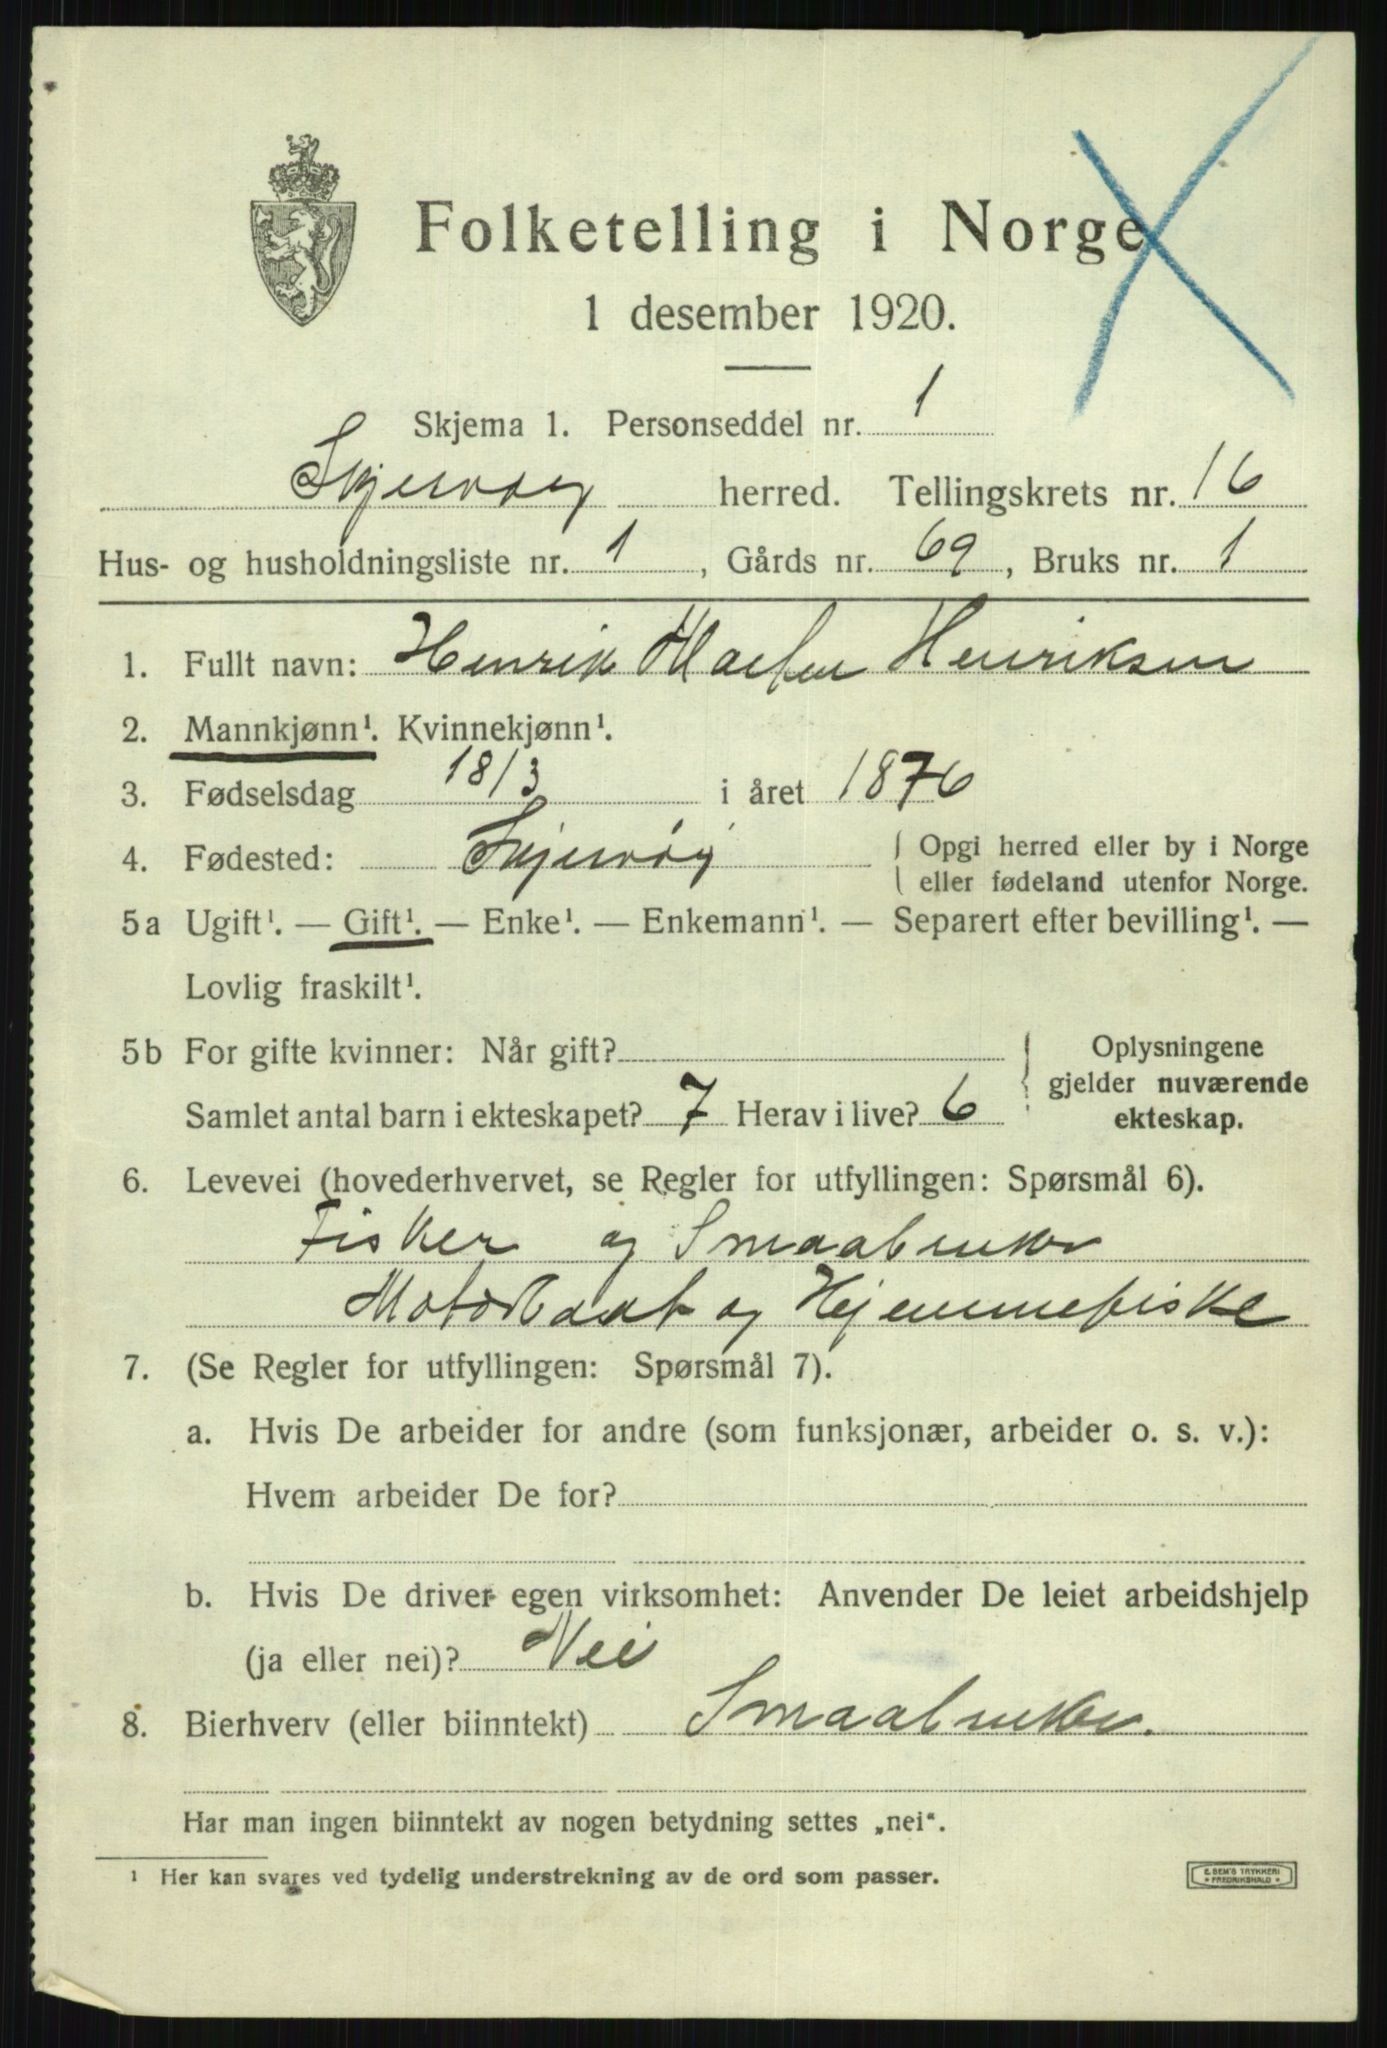 Folketelling i Norge
1 desember 1920.
Skjema 1. Personseddel nr. 1
Skjervøy herred. Tellingskrets nr. 16
Hus- og husholdningsliste nr. 1, Gårds nr. 69, Bruks nr. 1
1. Fullt navn: Henrik Henriksen
2. Mannkjønn¹. Kvinnekjønn¹.
3. Fødselsdag 18/3 i året 1876
4. Fødested: Skjervøy { Opgi herred eller by i Norge
eller fødeland utenfor Norge.
5a Ugift¹. — Gift¹. — Enke¹. — Enkemann¹. — Separert efter bevilling¹. —
Lovlig fraskilt¹.
5b For gifte kvinner: Når gift?
Samlet antal barn i ekteskapet? 7 Herav i live? 6
Oplysningene
gjelder nuværende
ekteskap.
6. Levevei (hovederhvervet, se Regler for utfyllingen: Spørsmål 6).
Fisker og Smaabruker
Motorbaat og Hjemmefiske
7. (Se Regler for utfyllingen: Spørsmål 7).
a. Hvis De arbeider for andre (som funksjonær, arbeider o. s. v.):
Hvem arbeider De for?
b. Hvis De driver egen virksomhet: Anvender De leiet arbeidshjelp
(ja eller nei)? Nei
8. Bierhverv (eller biinntekt) Smaabruker.
Har man ingen biinntekt av nogen betydning settes „nei“.
¹ Her kan svares ved tydelig understrekning av de ord som passer.
E. SEM'S TRYKKERI
FREDRIKSHALD